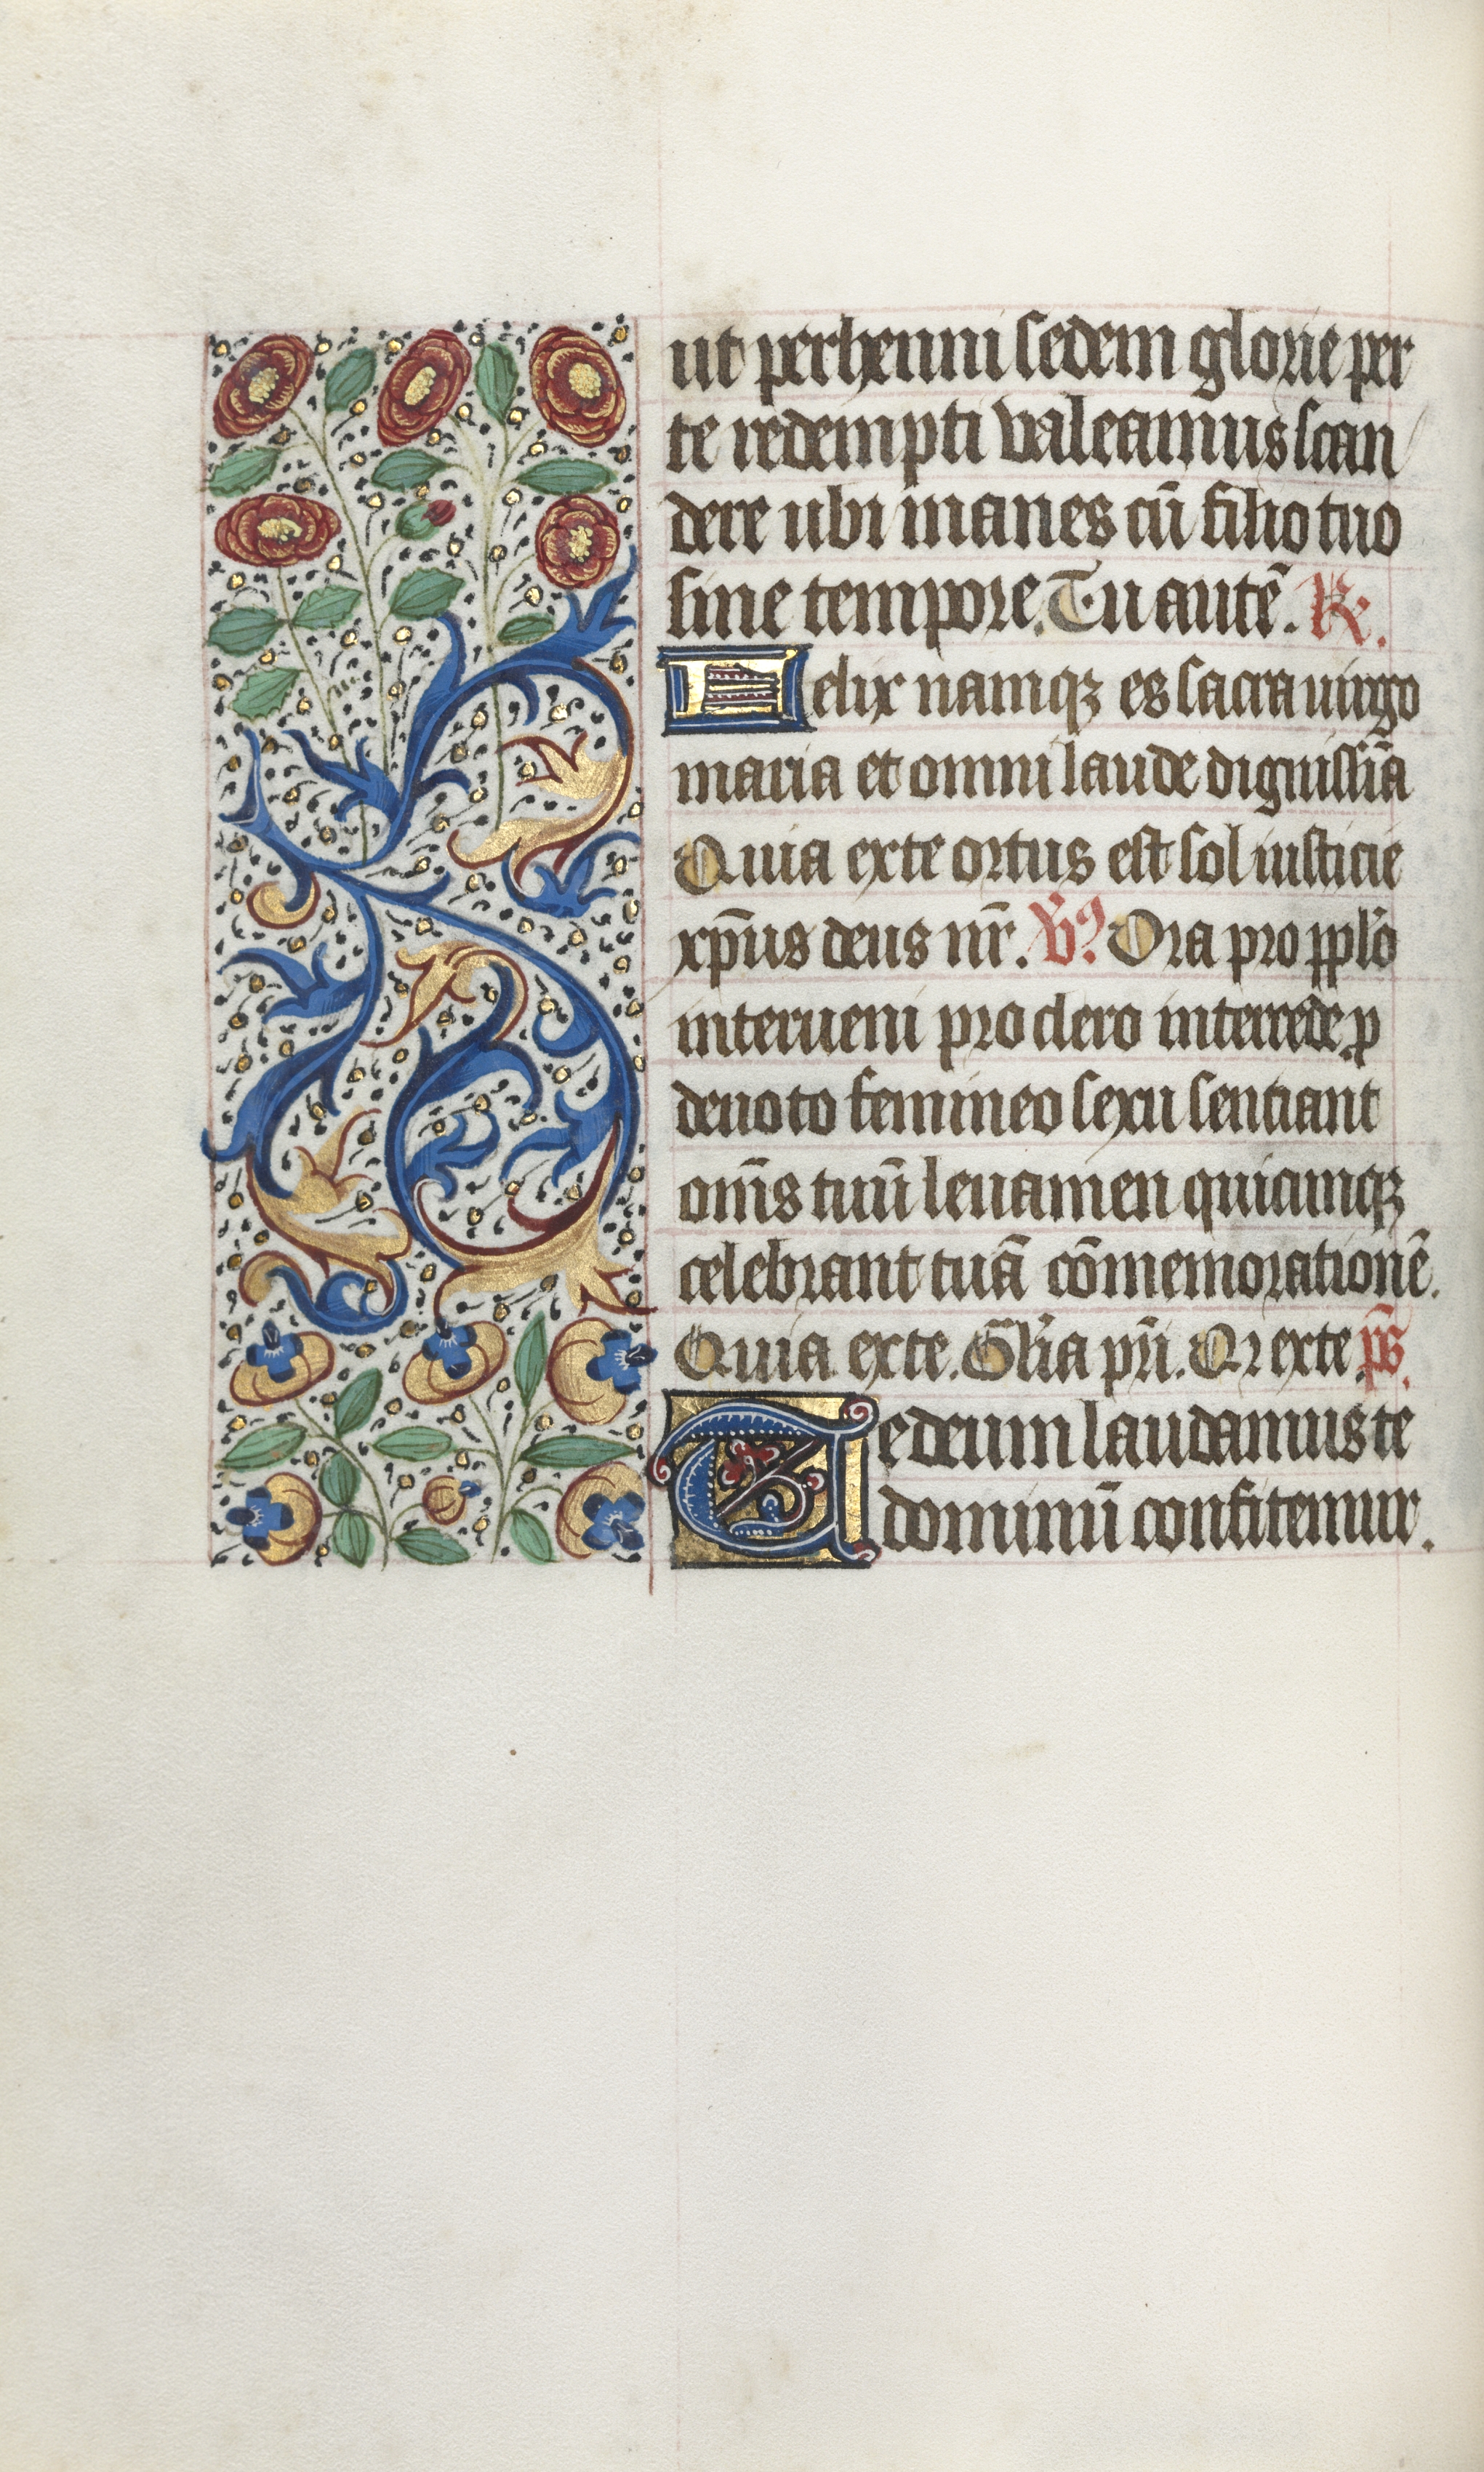 ut perhenni sedem glorie per
te redempti valeamus scan
dere ubi manes cū filio tuo
sine tempore. Tu autē. R.
Felix namqȝ es sacra uirgo
maria et omni laude dignissīa
Quia ex te ortus est sol iusticie
xp̄us deus nr̄. V̄ꝰ Ora pro pplo
interueni pro clero intercede p
deuoto femineo sexu sentiant
om̄s tuū leuamen quicumqȝ
celebrant tuā cōmemorationē.
Quia ex te. Glīa pr̄i. Qr ex te. ps̄.
Te deum laudamus te
dominū confitemur.